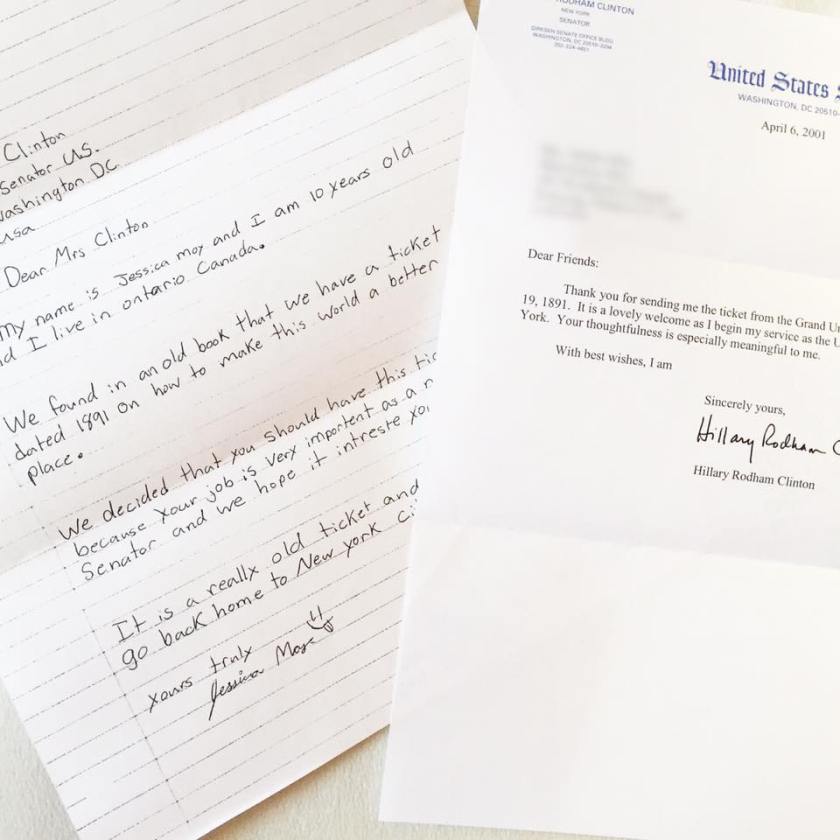 Clinton
Senator U.S.
Washington DC
usa
Dear Mrs Clinton
My name is Jessica moy and I am 10 years old
I live in ontario Canada.
We found in an old book that we have a ticket
dated 1891 on how to make this world a better
place.
We decided that you should have this
because your job is very importent as a
Senator and we hope it intreste
It is a really old ticket and
go back home to New york
yours truly
Jessica
RODHAM CLINTON
NEW YORK
SENATOR
SENATE OFFICE BLDG
WASHINGTON, DC 20510
United States
WASHINGTON, DC 20510
April 6, 2001
Dear Friends:
Thank you for sending me the ticket from the Grand
19, 1891. It is a lovely welcome as I begin my service as the
York. Your thoughtfulness is especially meaningful to me.
With best wishes, I am
Sincerely yours,
Hillary Rodham
Hillary Rodham Clinton